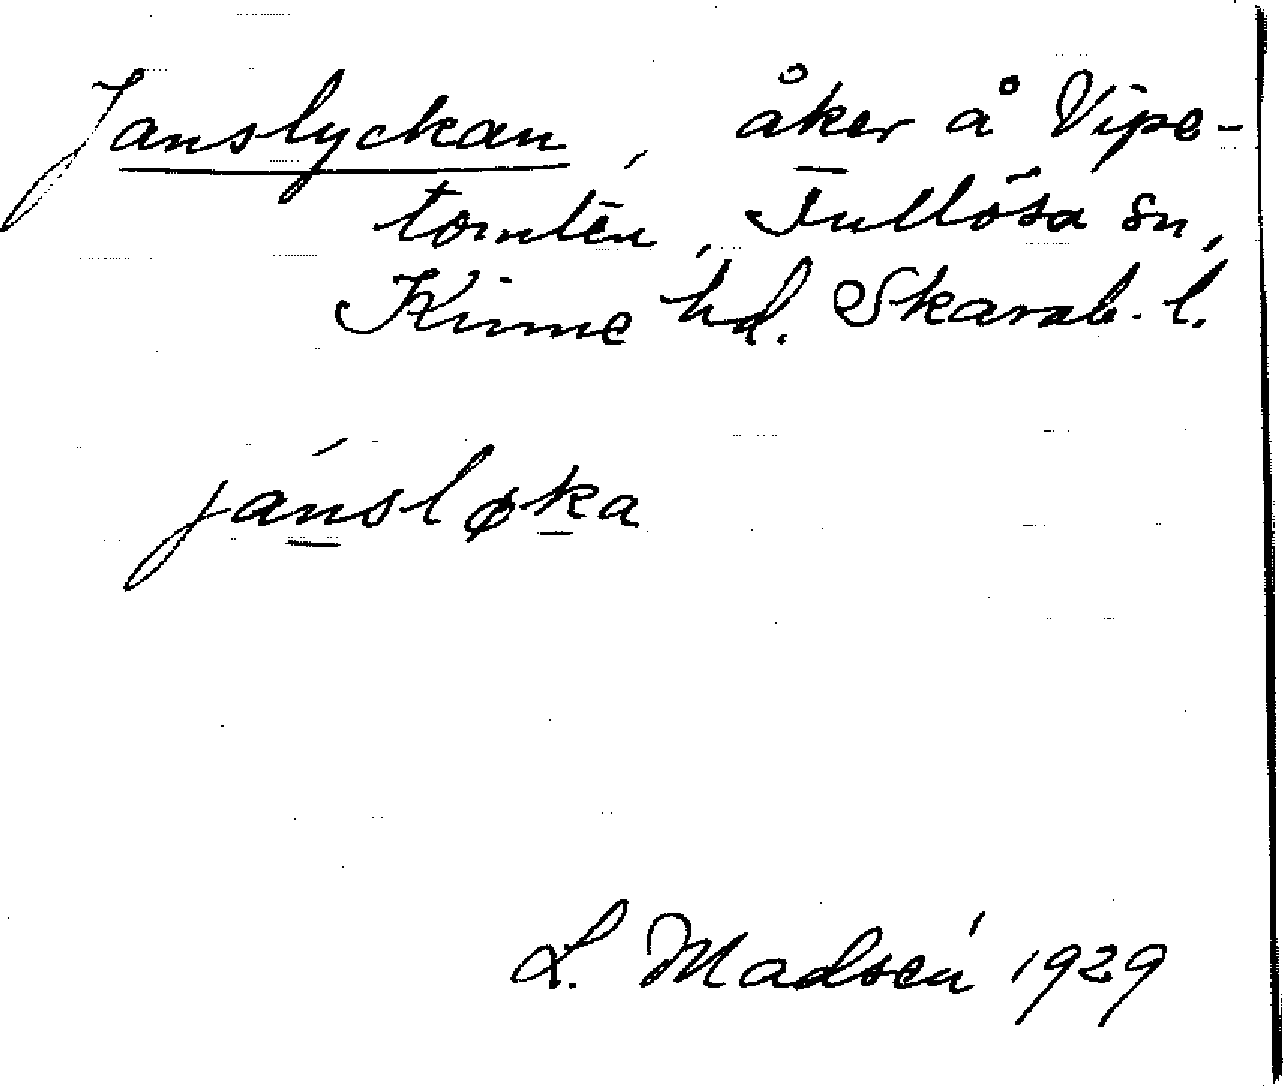 Janslyckan, åker å Vipe-
tomten, Fullösa sn,
Kinne hd. Skarab. l.
jánsløka
L. Madsén 1929